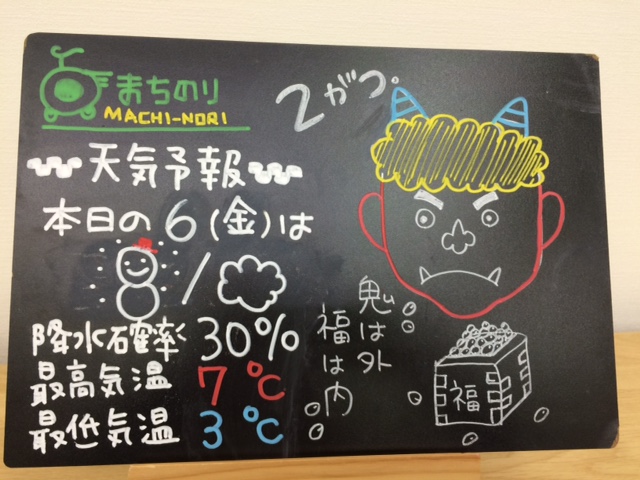 まちのり
MACHI-NORI
2がつ。
天気予報
本日の6(金)は
/
降水確率 30%
最高気温 7℃
最低気温 3℃
鬼は外
福は内
福